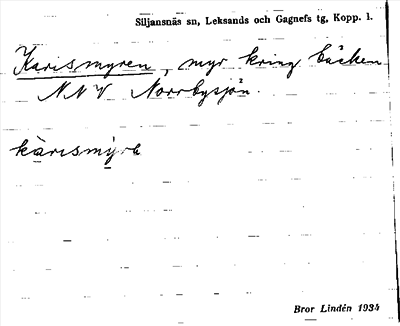 Siljansnäs sn, Leksands och Gagnefs tg, Kopp. l.
Karismyren, myr kring bäcken
NNV Norrbysjön.
kàrısmỳra
Bror Lindén 1934